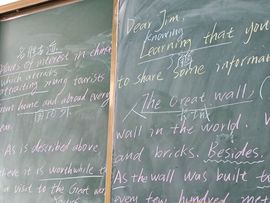 名胜古迹
places of interest in china
which interests
attracting many tourists
from home and abroad every
国内外
As is described above
here it is worthwhile to
a visit to the Great wa
Dear Jim,
knowing
Learning that you
to share some informat
The Great wall,
wall in the world.
and bricks. Besides,
As the wall was built t
every few hundred met